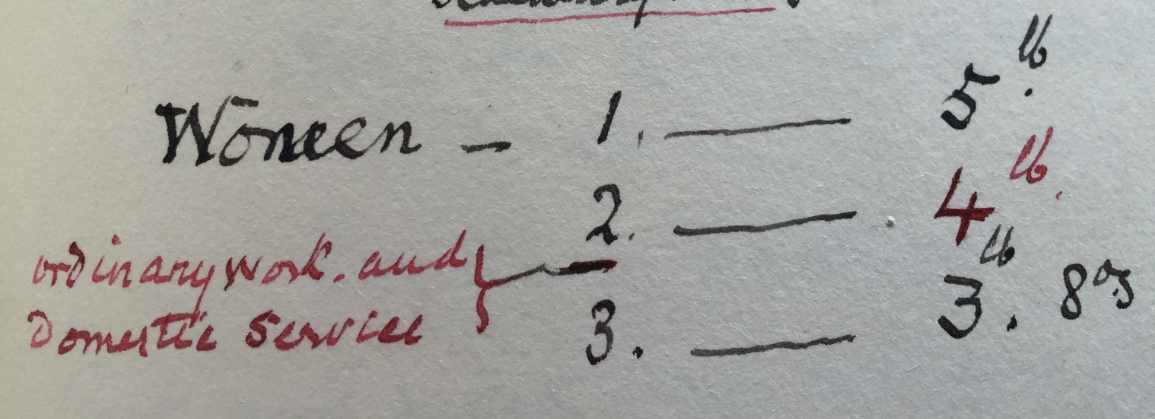 Women – 1. — 5 lb.
2. — 4 lb.
ordinary work. and
Domestic Service
3. — 3 lb. 8 oz